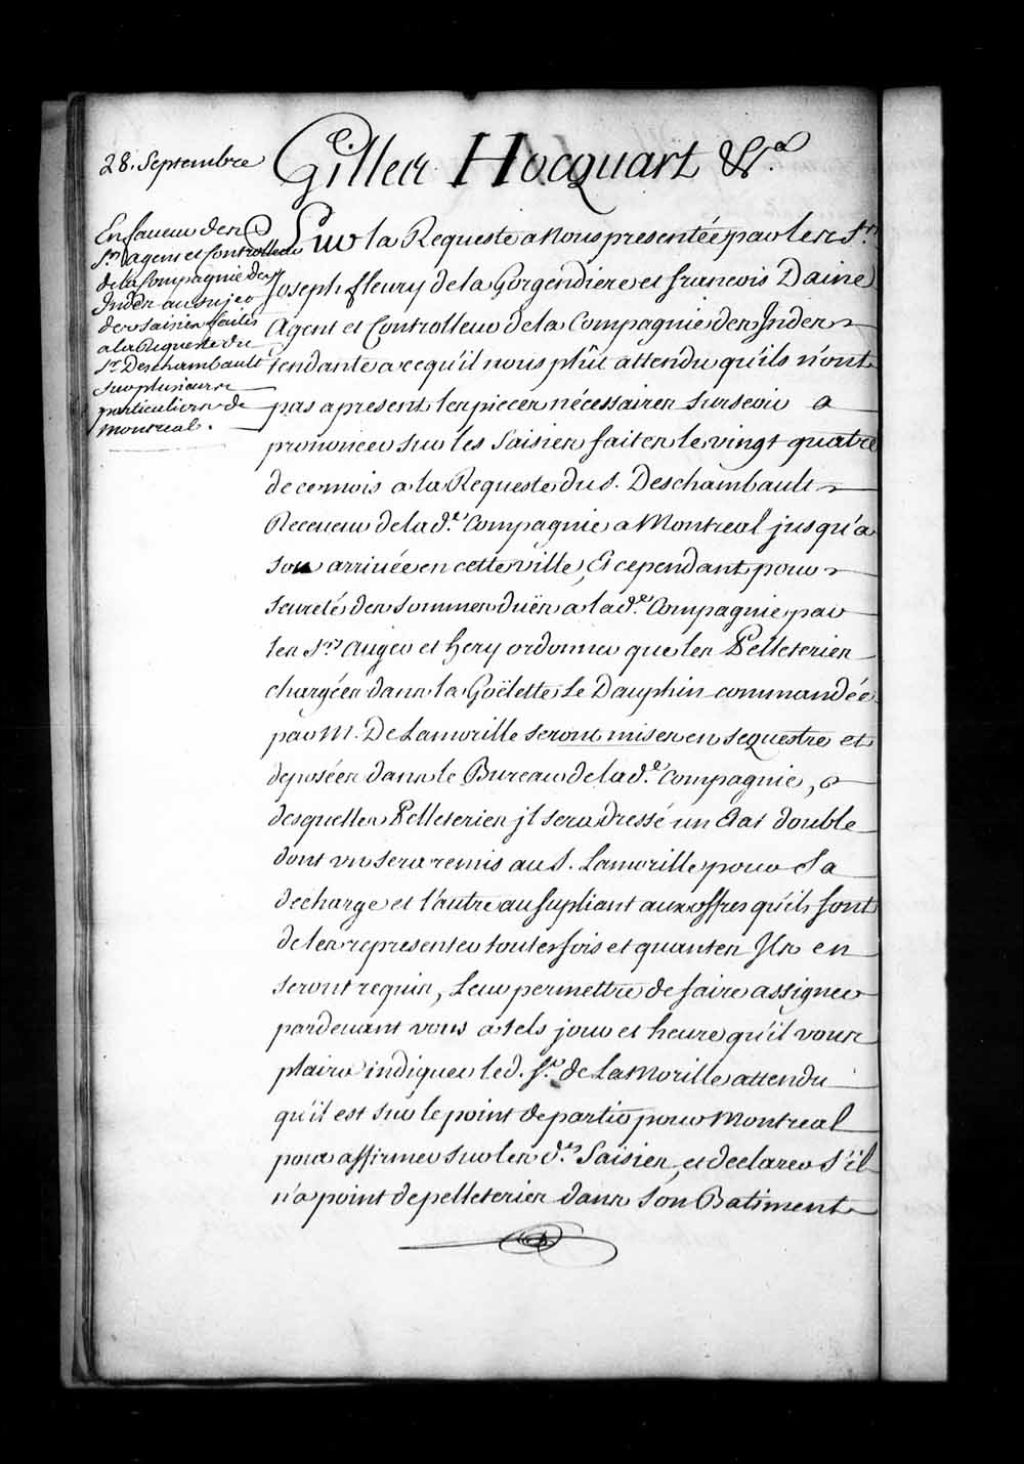 28. Septembre
Gilles Hocquart &c.a
En faveur des
Srs agent et Controlleur
de la Compagnie des
Indes au sujet
des saisies faites
a la Requeste du
Sr. Deschambault
sur plusieurs
particuliers de
Montreal.
Sur la Requeste a Nous presentée par les Srs
Joseph fleury de la Gorgendiere et francois Daine
Agent et Controlleur de la Compagnie des Indes
tendante a ce qu'il nous plût attendu qu'ils n'ont
pas apresent les pieces nécessaires surseoir a
prononcer sur les Saisies faites le vingt quatre
de ce mois a la Requeste du S. Deschambault
Receveur de la d.e Compagnie a Montreal jusqu'a
son arrivée en cette ville, Et cependant pour
seureté des sommes duës a la d.e Compagnie par
les Srs Auger et hery ordonner que les Pelleteries
chargées dans la Goëlette Le Dauphin commandée
par M. De Lamorille seront mises en sequestre et
deposées dans le Bureau de la d.e Compagnie,
desquelles Pelleteries jl sera dressé un Etat double
dont un sera remis au S. Lamorille pour Sa
decharge et l'autre au supliant aux offres qu'ils font
de les representer toutesfois et quantes Ils en
seront requis, Leur permettre de faire assigner
pardevant vous a tels jour et heure qu'il vous
plaira indiquer led. Sr. de LaMorille attendu
qu'il est sur le point de partir pour Montreal
pour affirmer sur les d.es Saisies, et declarer s'il
n'a point de pelleteries dans son Batiment